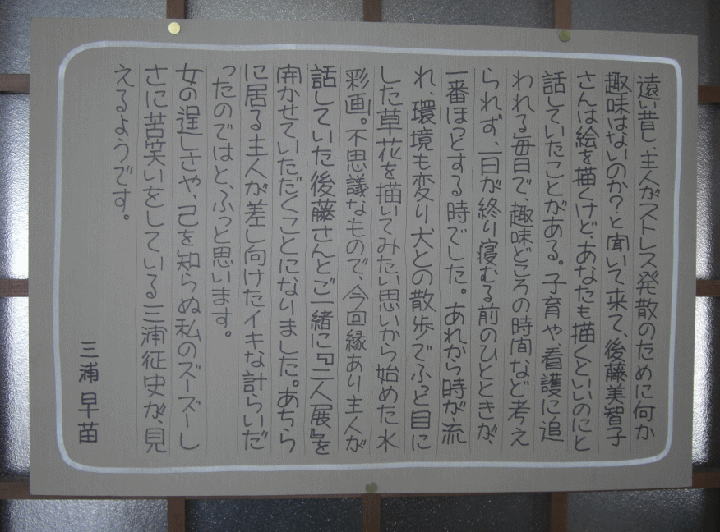 遠い昔、主人がストレス発散のために何か
趣味はないのか?と聞いて来て、後藤美智子
さんは絵を描くけど、あなたも描くといいのにと
話していたことがある。子育や看護に追
われる毎日で、趣味どころの時間など考え
られず、一日が終り寝むる前のひとときが、
一番ほっとする時でした。あれから時が流
れ、環境も変り犬との散歩でふっと目に
した草花を描いてみたい思いから始めた水
彩画。不思議なもので、今回縁あり主人が
話していた後藤さんとご一緒に『二人展』を
開かせていただくことになりました。あちら
に居る主人が差し向けたイキな計らいだ
ったのではと、ふっと思います。
女の逞しさや、己を知らぬ私のズーズーし
さに苦笑いをしている三浦征史が、見
えるようです。
三浦早苗